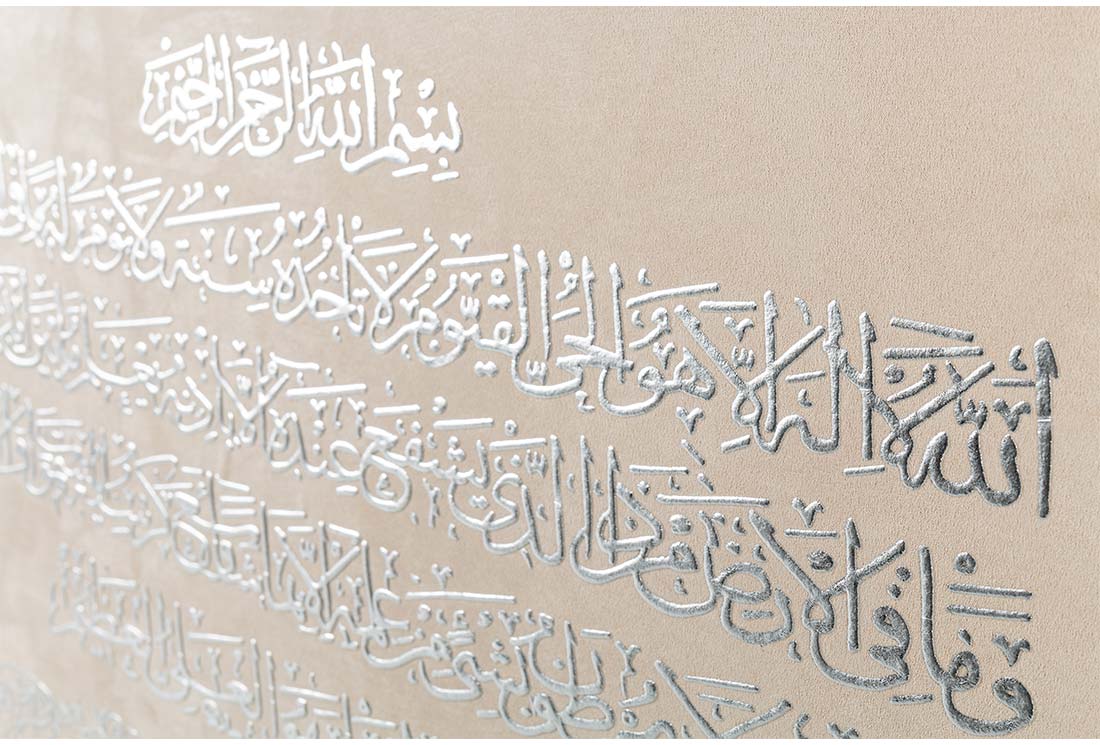 بِسْمِ اللَّهِ الرَّحْمَنِ الرَّحِيمِ
اللَّهُ لَا إِلَهَ إِلَّا هُوَ الْحَيُّ الْقَيُّومُ لَا تَأْخُذُهُ سِنَةٌ وَلَا نَوْمٌ لَهُ مَا فِي
وَمَا فِي الْأَرْضِ مَنْ ذَا الَّذِي يَشْفَعُ عِنْدَهُ إِلَّا بِإِذْنِهِ يَعْلَمُ مَا بَيْنَ
وَلَا يُحِيطُونَ بِشَيْءٍ مِنْ عِلْمِهِ إِلَّا بِمَا شَاءَ وَسِعَ كُرْسِيُّهُ السَّمَوَاتِ
وَهُوَ الْعَلِيُّ الْعَظِيمُ